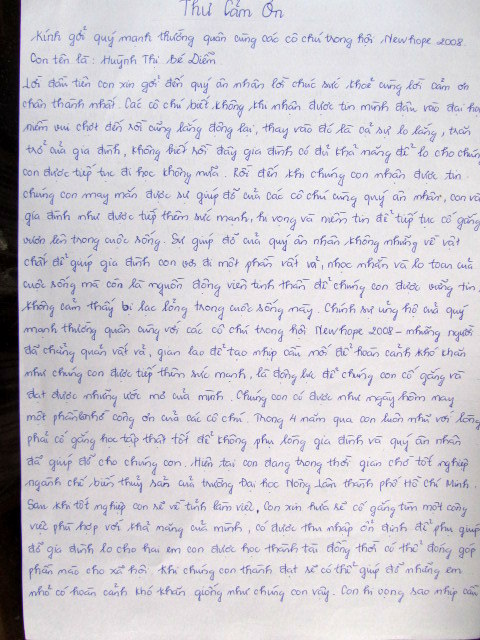 Thư Cảm Ơn
Kính gởi quý mạnh thường quân cùng các cô chú trong hội Newhope 2008.
Con tên là : Huỳnh Thị Bé Diễm
Lời đầu tiên con xin gởi đến quý ân nhân lời chúc sức khoẻ cùng lời cảm ơn
chân thành nhất. Các cô chú biết không, khi nhận được tin mình đậu vào đại học
niềm vui chợt đến rồi cũng lắng đọng lại, thay vào đó là cả sự lo lắng, trăn
trở của gia đình, không biết rồi đây gia đình có đủ khả năng để lo cho chúng
con được tiếp tục đi học không nữa. Rồi đến khi chúng con nhận được tin
chúng con may mắn được sự giúp đỡ của các cô chú cùng quý ân nhân, con và
gia đình như được tiếp thêm sức mạnh, hi vọng và niềm tin để tiếp tục cố gắng
vươn lên trong cuộc sống. Sự giúp đỡ của quý ân nhân không những về vật
chất để giúp gia đình con vơi đi một phần vất vả, nhọc nhằn và lo toan của
cuộc sống mà còn là nguồn động viên tinh thần để chúng con được vững tin,
không cảm thấy bị lạc lõng trong cuộc sống này. Chính sự ủng hộ của quý
mạnh thường quân cùng với các cô chú trong hội Newhope 2008 - những người
đã chẳng quản vất vả, gian lao để tạo nhịp cầu nối để hoàn cảnh khó khăn
như chúng con được tiếp thêm sức mạnh, là động lực để chúng con cố gắng và
đạt được những ước mơ của mình. Chúng con có được như ngày hôm nay
một phần nhờ công ơn của các cô chú. Trong 4 năm qua con luôn nhủ với lòng
phải cố gắng học tập thật tốt để không phụ lòng gia đình và quý ân nhân
đã giúp đỡ cho chúng con. Hiện tại con đang trong thời gian chờ tốt nghiệp
ngành chế biến thuỷ sản của trường Đại học Nông Lâm thành phố Hồ Chí Minh.
Sau khi tốt nghiệp con sẽ về tỉnh làm việc, con xin hứa sẽ cố gắng tìm một công
việc phù hợp với khả năng của mình, có được thu nhập ổn định để phụ giúp
đỡ gia đình lo cho hai em con được học thành tài đồng thời có thể đóng góp
phần nào cho xã hội. Khi chúng con thành đạt sẽ có thể giúp đỡ những em
nhỏ có hoàn cảnh khó khăn giống như chúng con vậy. Con hi vọng sao nhịp cầu